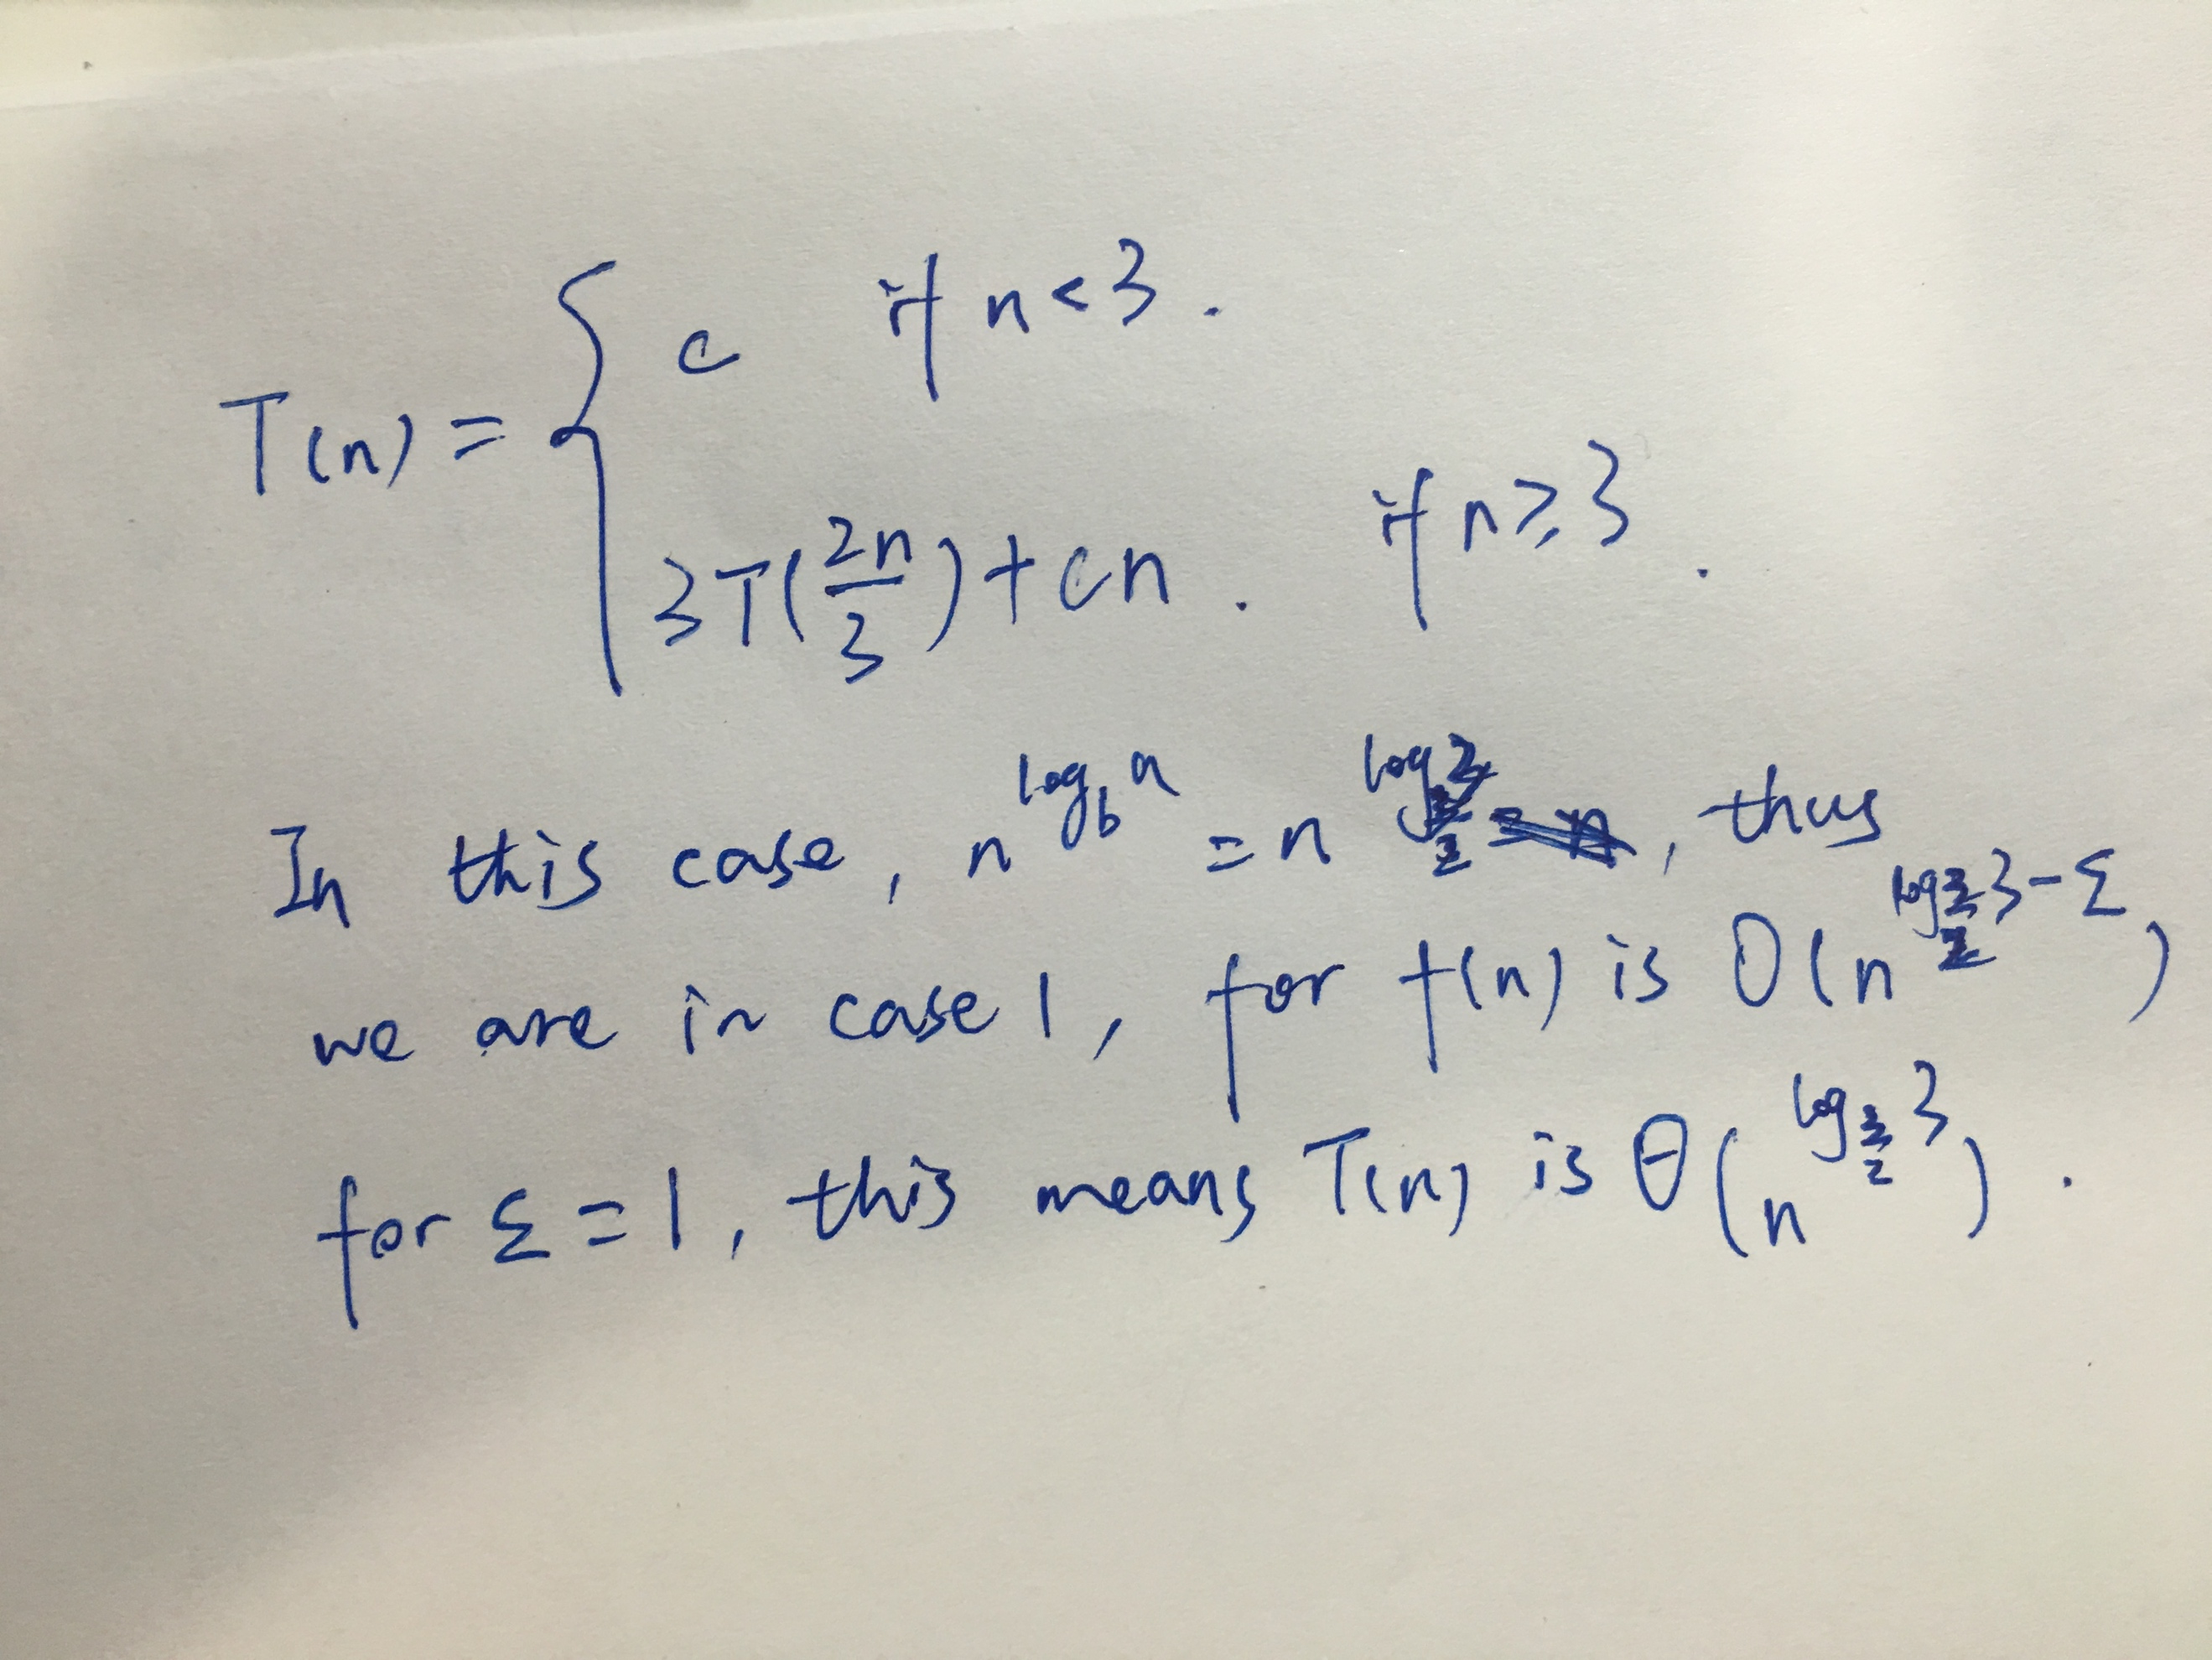 c if n<3.
T(n) =
3T(2n/3)+cn. if n≥3.
In this case, n^{log_b a} = n^{log_{3/2} 3}, thus
we are in case 1, for f(n) is O(n^{log_{3/2} 3-Σ})
for Σ=1, this means T(n) is θ(n^{log_{3/2} 3}).